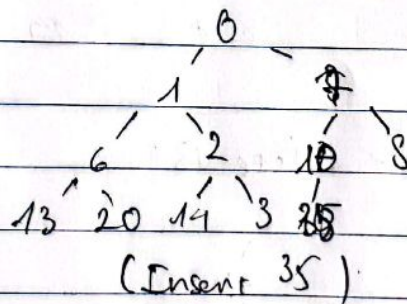 0
1 7
6 2 10 8
13 20 14 3 35
(Insert 35)